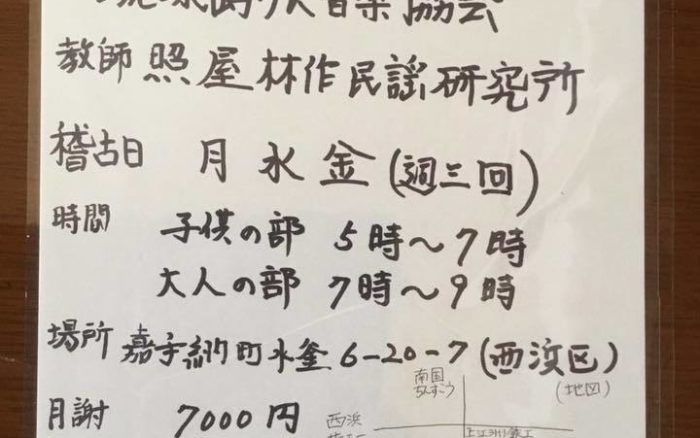 音楽協会
教師 照屋林作民謡研究所
稽古日 月水金(週三回)
時間 子供の部 5時〜7時
大人の部 7時〜9時
場所 嘉手納町水釜6-20-7(西浜区)
(地図)
南国
ちんすこう
月謝 7000円
西浜